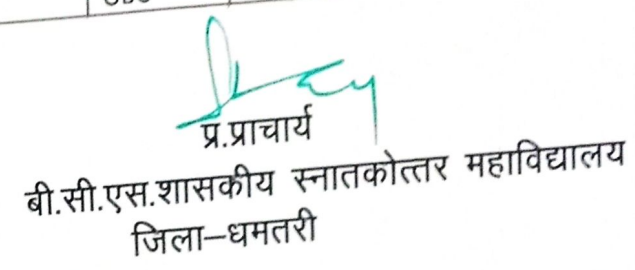 प्र.प्राचार्य
बी.सी.एस.शासकीय स्नातकोत्तर महाविद्यालय
जिला–धमतरी